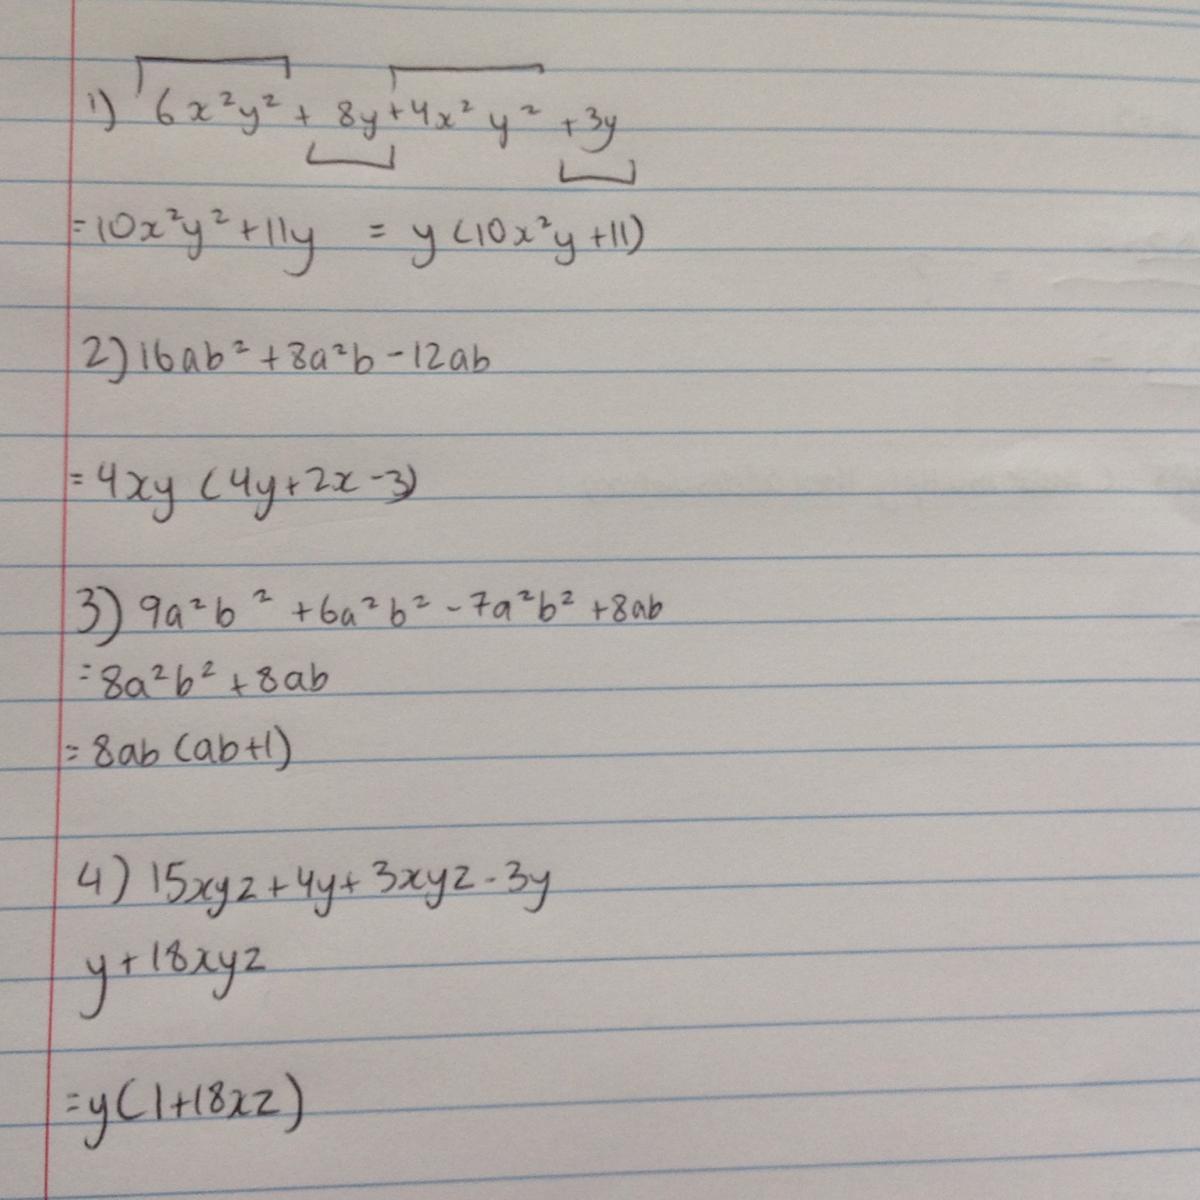 1) 6x²y² + 8y + 4x²y² + 3y
= 10x²y² + 11y = y (10x²y + 11)
2) 16ab² + 8a²b - 12ab
= 4xy (4y + 2x - 3)
3) 9a²b² + 6a²b² - 7a²b² + 8ab
= 8a²b² + 8ab
= 8ab (ab + 1)
4) 15xyz + 4y + 3xyz - 3y
y + 18xyz
= y (1 + 18xz)